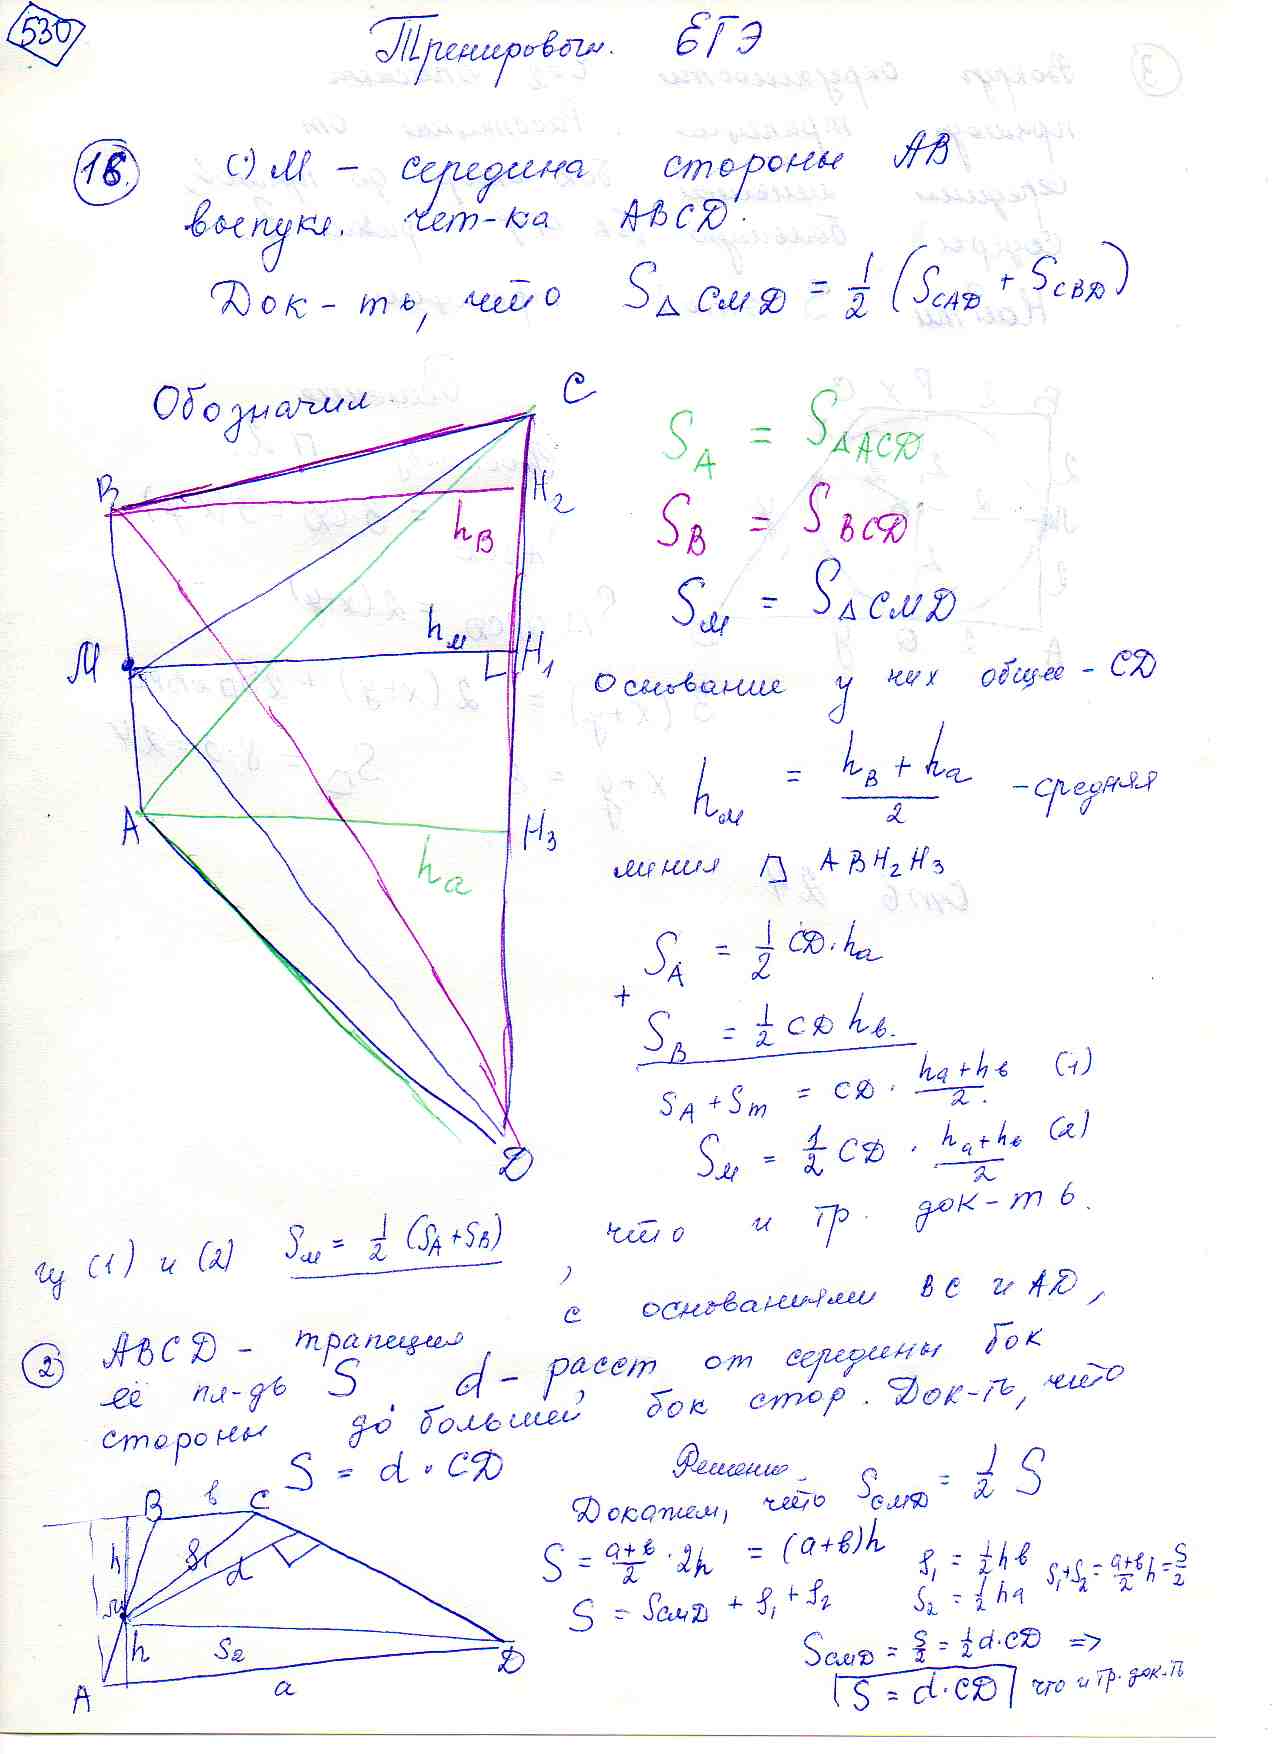 530
Тренировочн. ЕГЭ
16. (·) M – середина стороны AB
выпукл. чет-ка ABCD.
Док-ть, что S△CMD = 1/2 (SCAD + SCBD)
Обозначим
C
B
H2
hB
M
hм
H1
A
H3
ha
D
SA = S△ACD
SB = SBCD
Sм = S△CMD
Основание у них общее – CD
hм = (hB + ha)/2 – средняя
линия ABH2H3
SA = 1/2 CD·ha
+
SB = 1/2 CD hв.
SA + Sm = CD · (ha + hв)/2. (1)
Sм = 1/2 CD · (ha + hв)/2 (2)
из (1) и (2) Sм = 1/2 (SA + SB), что и тр. док-ть.
2 ABCD – трапеция с основаниями BC и AD,
её пл-дь S d – расст от середины бок
стороны до большей бок стор. Док-ть, что
S = d · CD
Решение
Докажем, что SCMD = 1/2 S
S = (a+в)/2 · 2h = (a+в)h
S = SCMD + S1 + S2
S1 = 1/2 hв
S2 = 1/2 ha
S1 + S2 = (a+в)/2 h = S/2
SCMD = S/2 = 1/2 d·CD =>
S = d·CD что и тр. док-ть
B
в
C
h
S1
d
M
h
S2
D
A
a